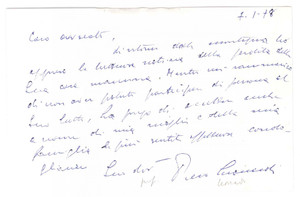 7-1-78
Caro avvocato,
di ritorno dalla montagna ho
appreso la luttuosa notizia della perdita della
Sua cara mamma. Mentre mi rammarico
di non aver potuto partecipare di persona al
Suo lutto, La prego di accettare anche
a nome di mia moglie e della mia
famiglia le più sentite affettuose condo-
glianze
Suo dev
Piero
prof